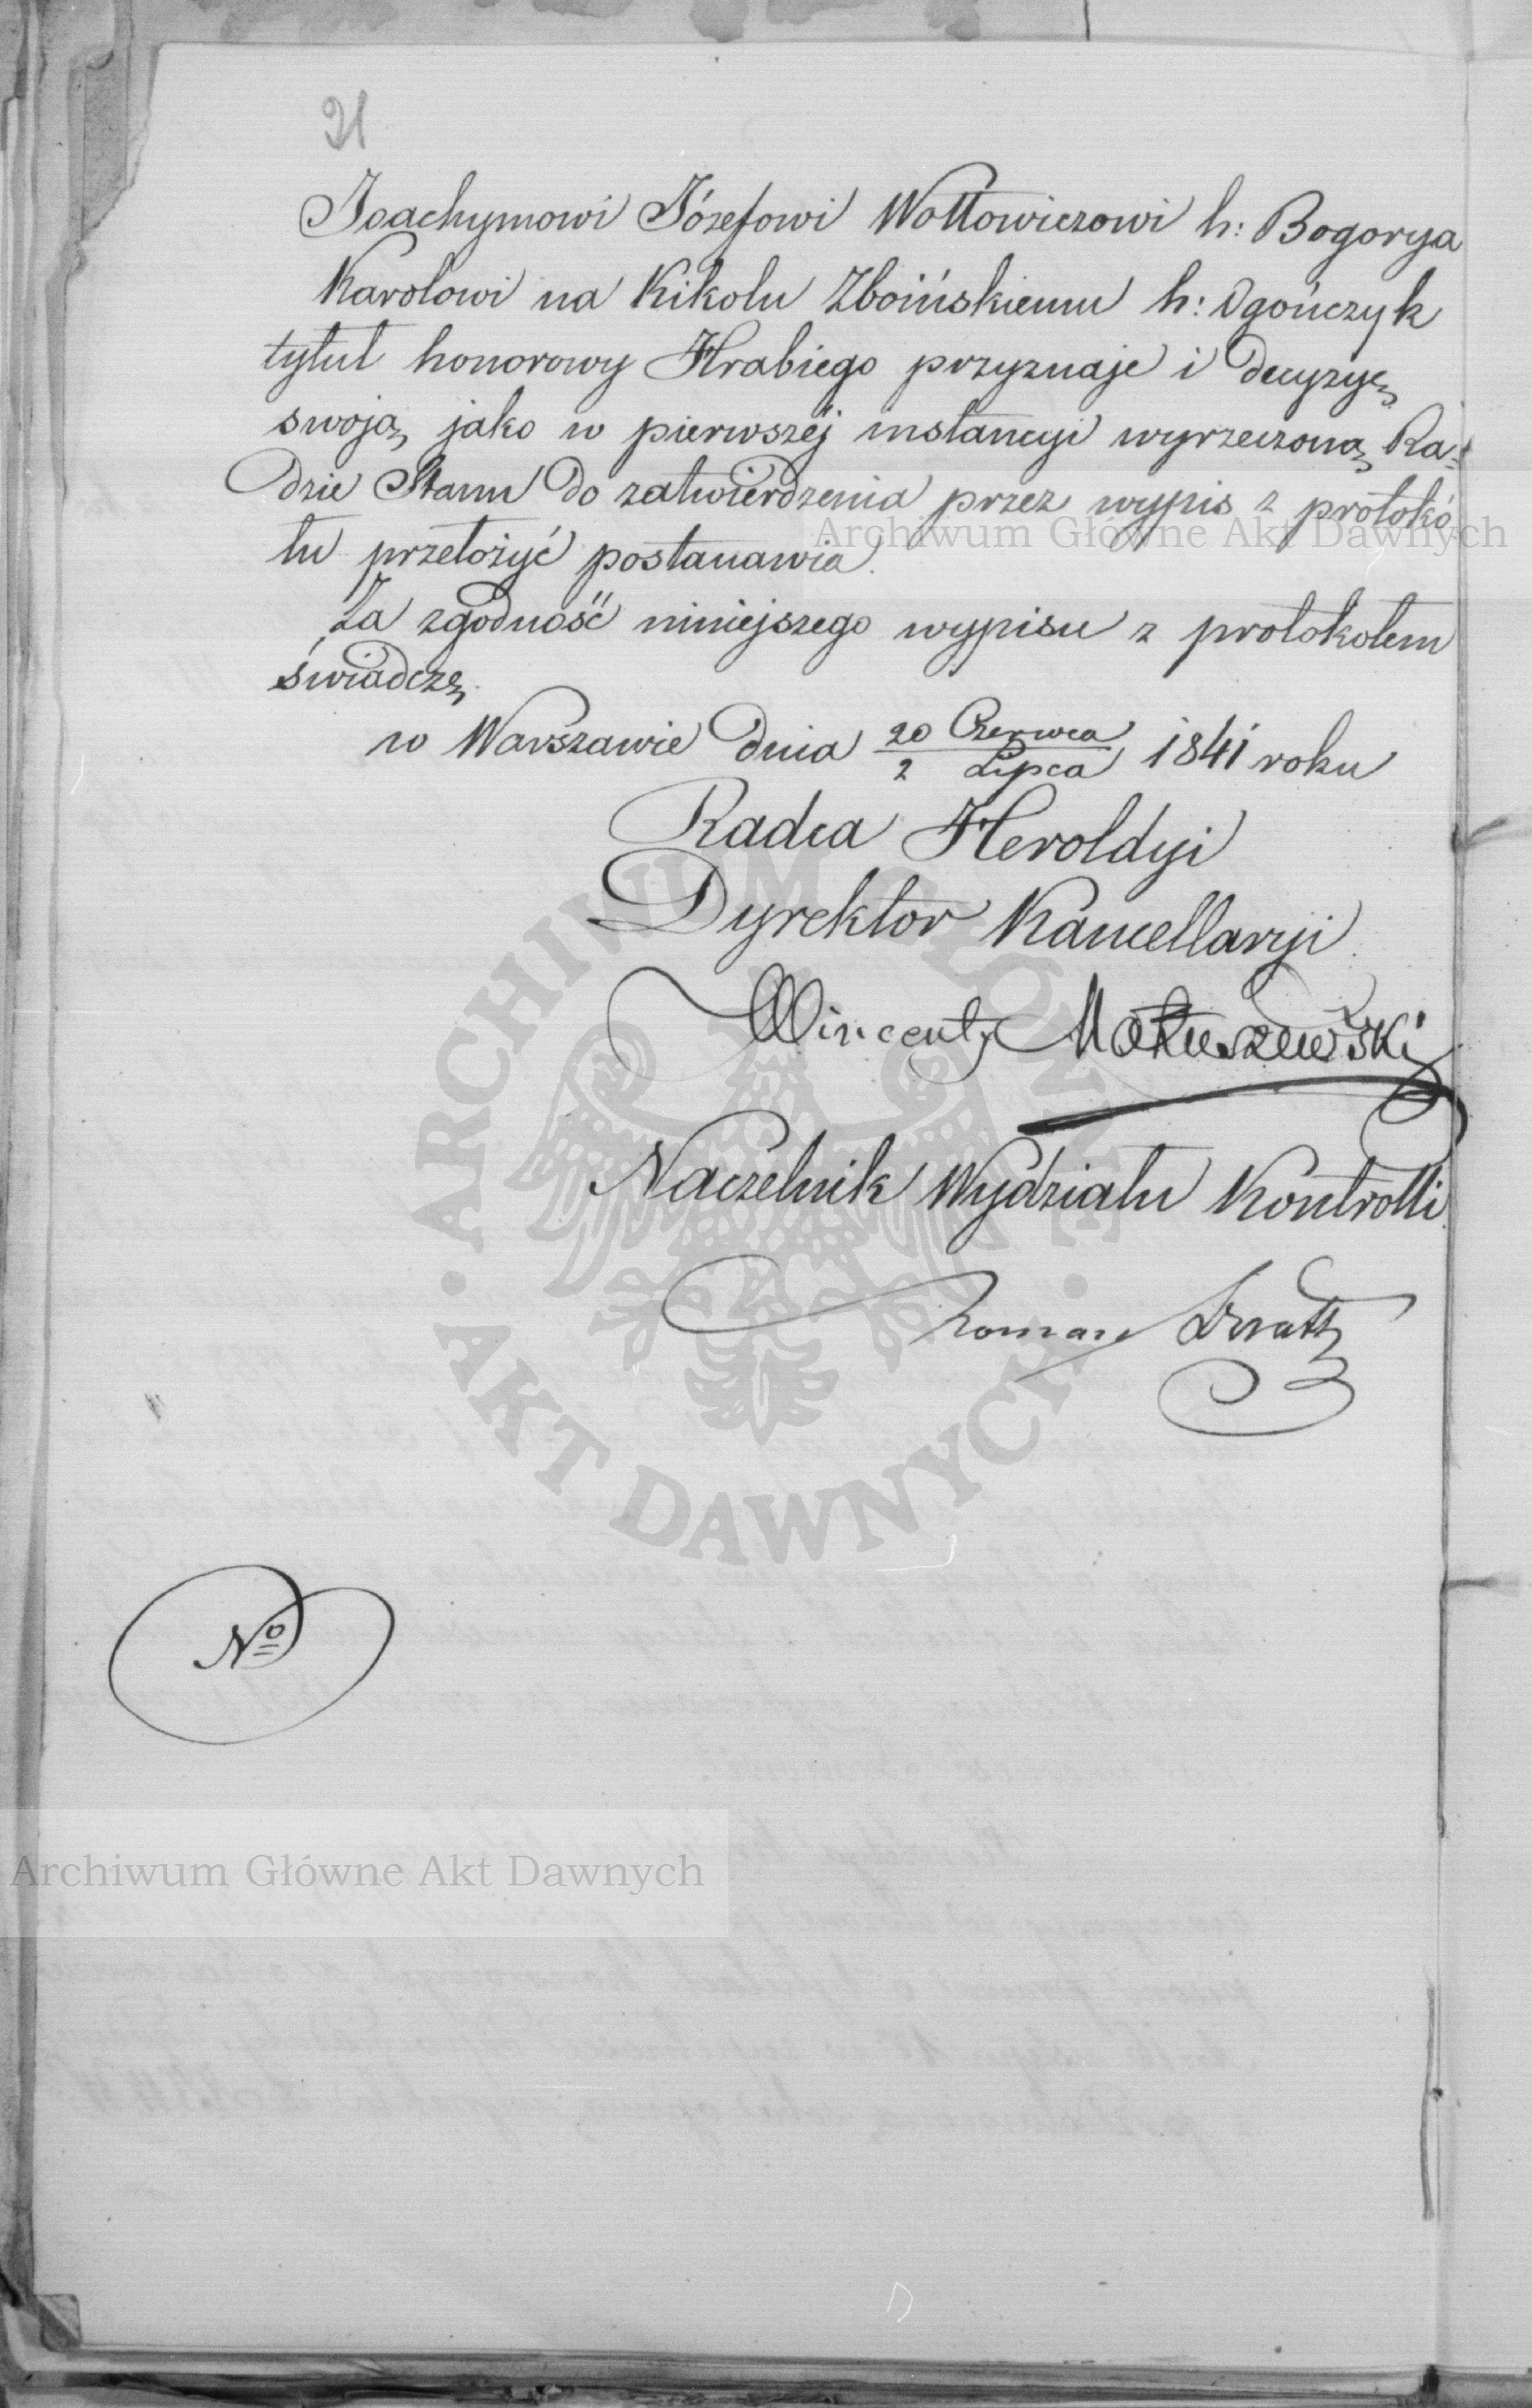 21
Joachymowi Józefowi Wołłowiczowi h: Bogorya
Karolowi na Kikolu Zboińskiemu h: Ogończyk
tytuł honorowy Hrabiego przyznaje i decyzyę
swoją, jako w pierwszéj instancyi wyrzeczoną, Ra-
dzie Stanu do zatwierdzenia przez wypis z protokó
łu przełożyć postanawia.
Za zgodność niniejszego wypisu z protokołem
świadczę.
w Warszawie dnia 20 Czerwca / 2 Lipca 1841 roku
Radca Heroldyi
Dyrektor Kancellaryi
Wincenty Matuszewski
Naczelnik Wydziału Kontrolli
Roman
Nº
Archiwum Główne Akt Dawnych
ARCHIWUM GŁÓWNE · AKT DAWNYCH ·
Archiwum Główne Akt Dawnych